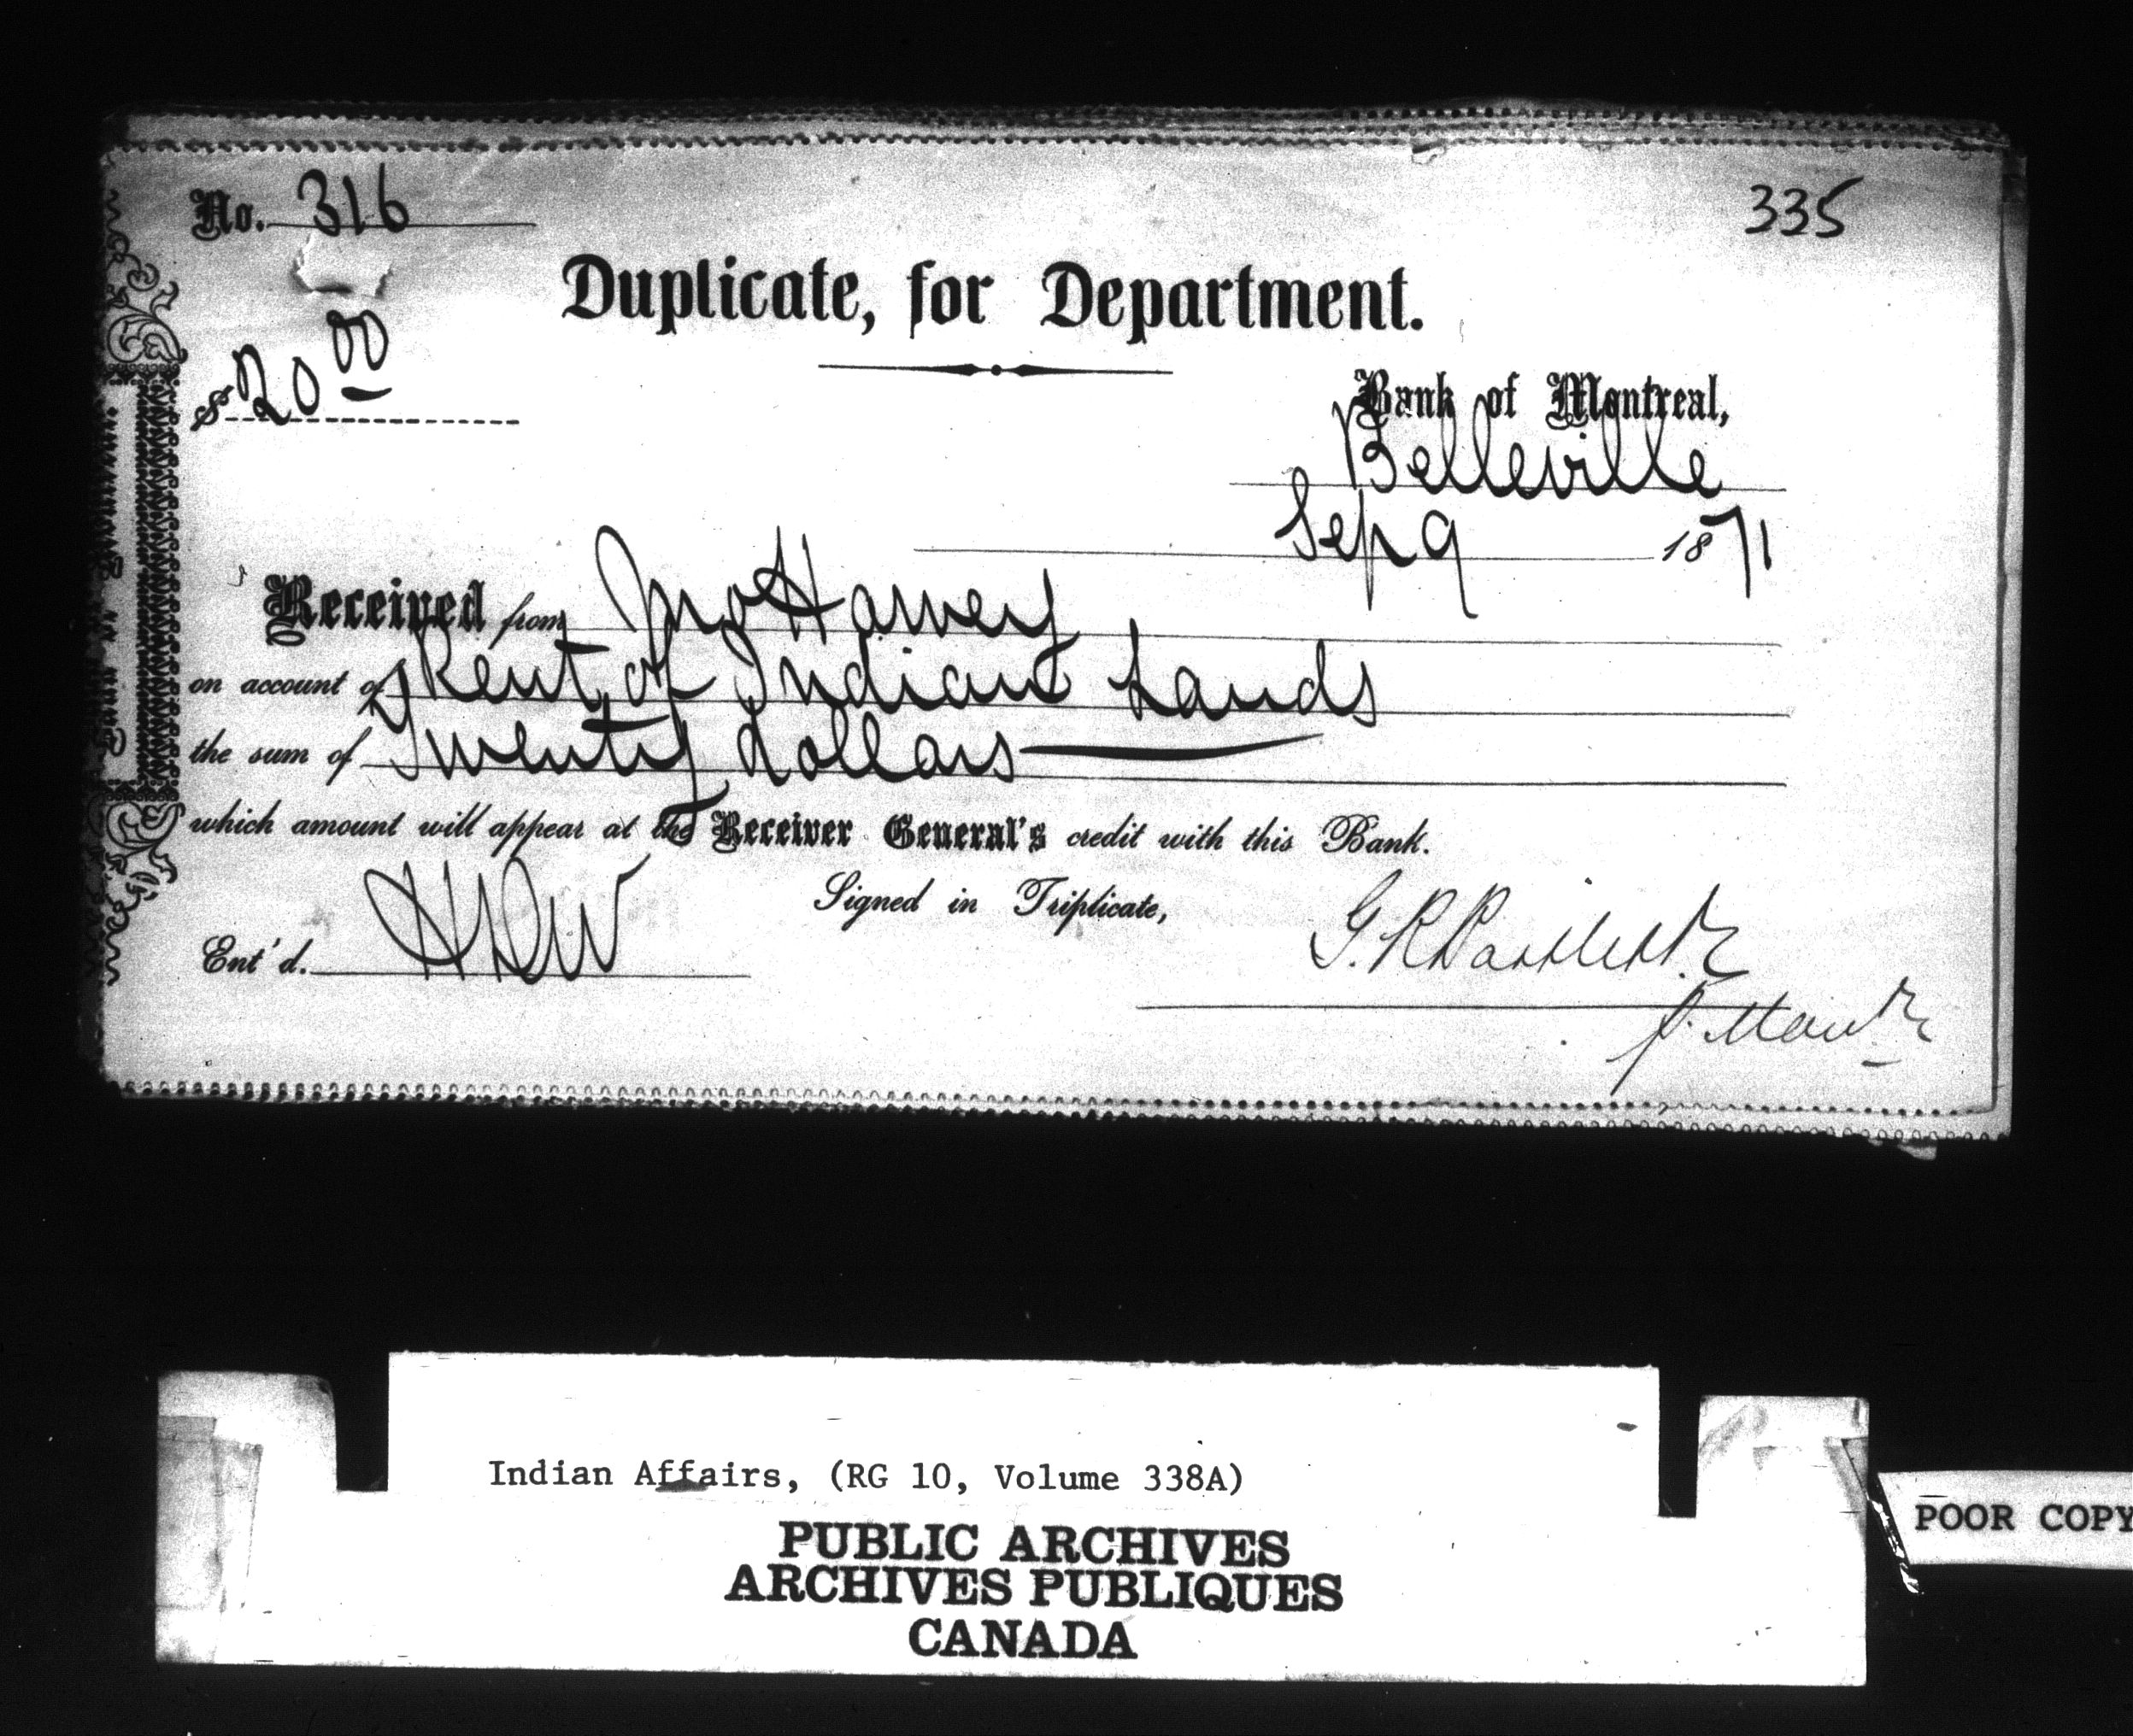 No. 316
335
Duplicate, for Department.
$ 20 00
Bank of Montreal,
Belleville
Sep 9 1871
Received from Jno Harvey
on account of Rent of Indian Lands
the sum of Twenty dollars
which amount will appear at the Receiver General's credit with this Bank.
Signed in Triplicate,
Ent'd.
Indian Affairs, (RG 10, Volume 338A)
POOR COPY
PUBLIC ARCHIVES
ARCHIVES PUBLIQUES
CANADA